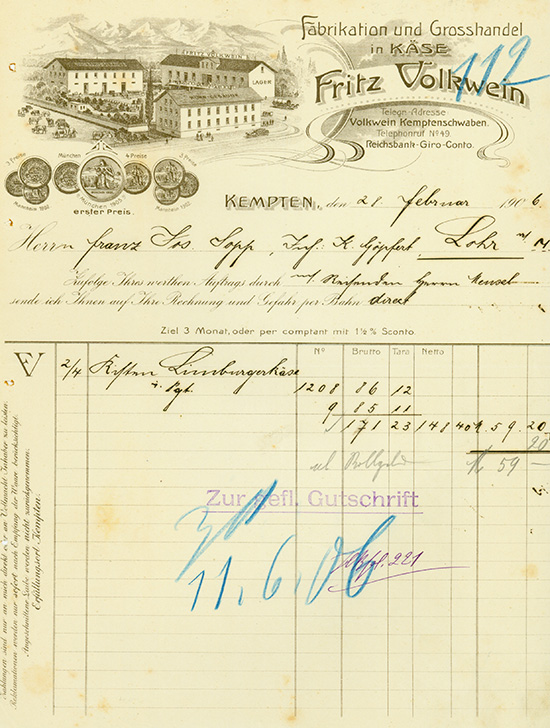 Fabrikation und Grosshandel
in KÄSE
Fritz Volkwein
112
FRITZ VOLKWEIN
LAGER
Telegr.-Adresse
Volkwein Kemptenschwaben.
Telephonruf No 49.
Reichsbank-Giro-Conto.
3 Preise
München
4 Preise
3 Preise
München 1905
Mannheim 1880
erster Preis.
Mannheim 1902
KEMPTEN, den 28 Februar 1906.
Herrn Franz Jos. Sopp, Inh: K. Höpfert, Lohr a/M
Zufolge Ihres werthen Auftrags durch m/ Reisenden Herrn Mensel
sende ich Ihnen auf Ihre Rechnung und Gefahr per Bahn direct
Ziel 3 Monat, oder per comptant mit 1½ % Sconto.
No Brutto Tara Netto
FV 2/4 Kisten Limburgerkäse
Pgt. 1208 86 12
9 85 11
171 23 148 40 M. 59. 20
20
Rollgeld M 59 —
Zur gefl. Gutschrift
11. 6. 06
221
Zahlungen sind nur an mich direkt oder an Vollmacht-Inhaber zu leisten.
Reklamationen werden nur sofort nach Empfang der Waare berücksichtigt.
Angeschnittene Laibe werden nicht zurückgenommen.
Erfüllungsort Kempten.